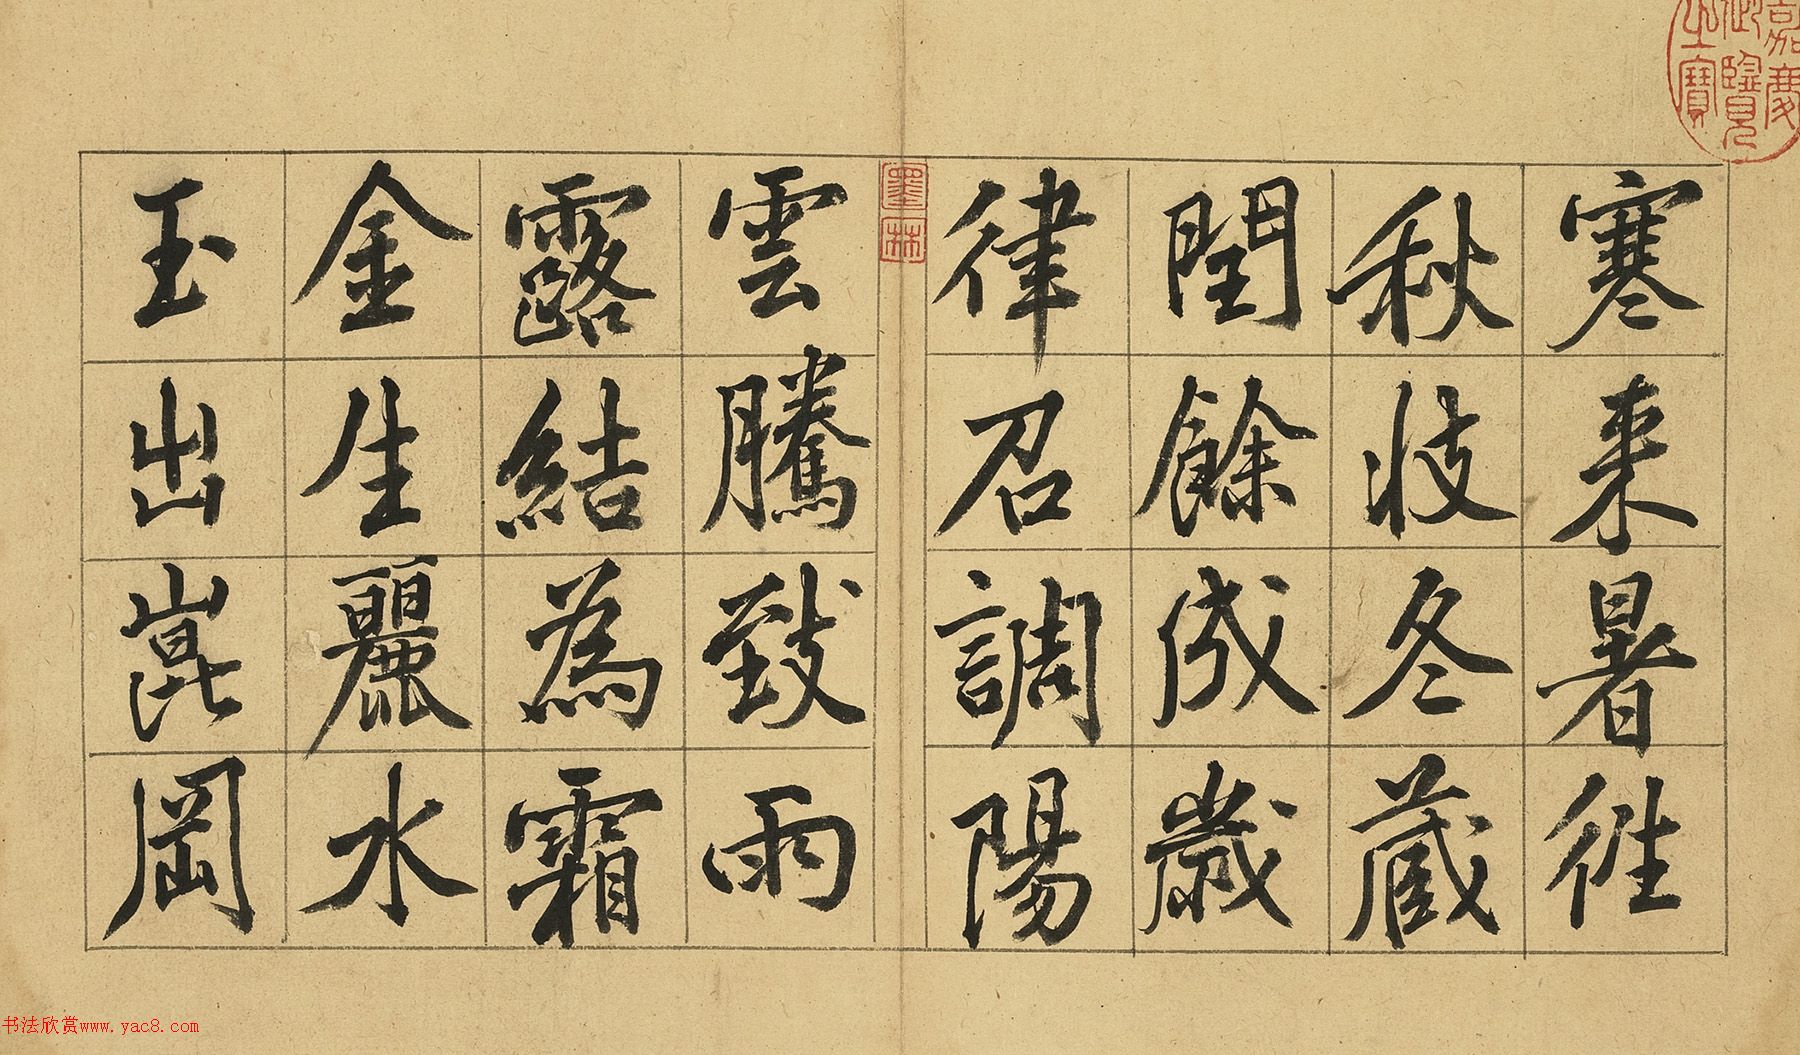 寒来暑往
秋收冬蔵
閏餘成歲
律召調陽
雲騰致雨
露結為霜
金生麗水
玉出崑岡
嘉慶
御覽
之寶
墨林
书法欣赏www.yac8.com